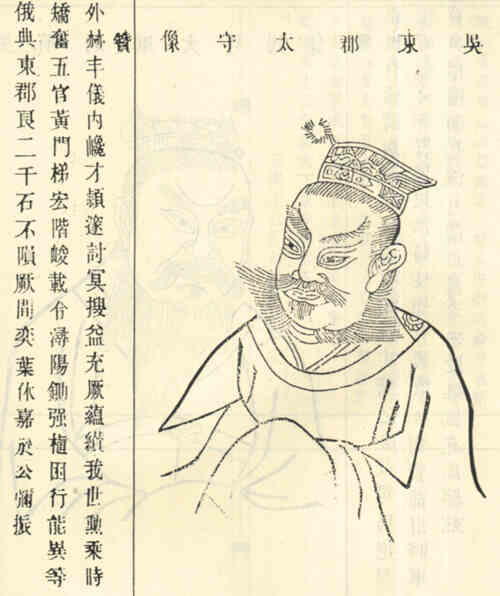 吳東郡太守像
贊
外赫丰儀內巉才頴邃討冥搜益充厥蘊纘我世勳乘時
矯奮五官黃門梯宏階峻載令潯陽鋤强植困行能異等
俄典東郡良二千石不隕厥問奕葉休嘉於公彌振